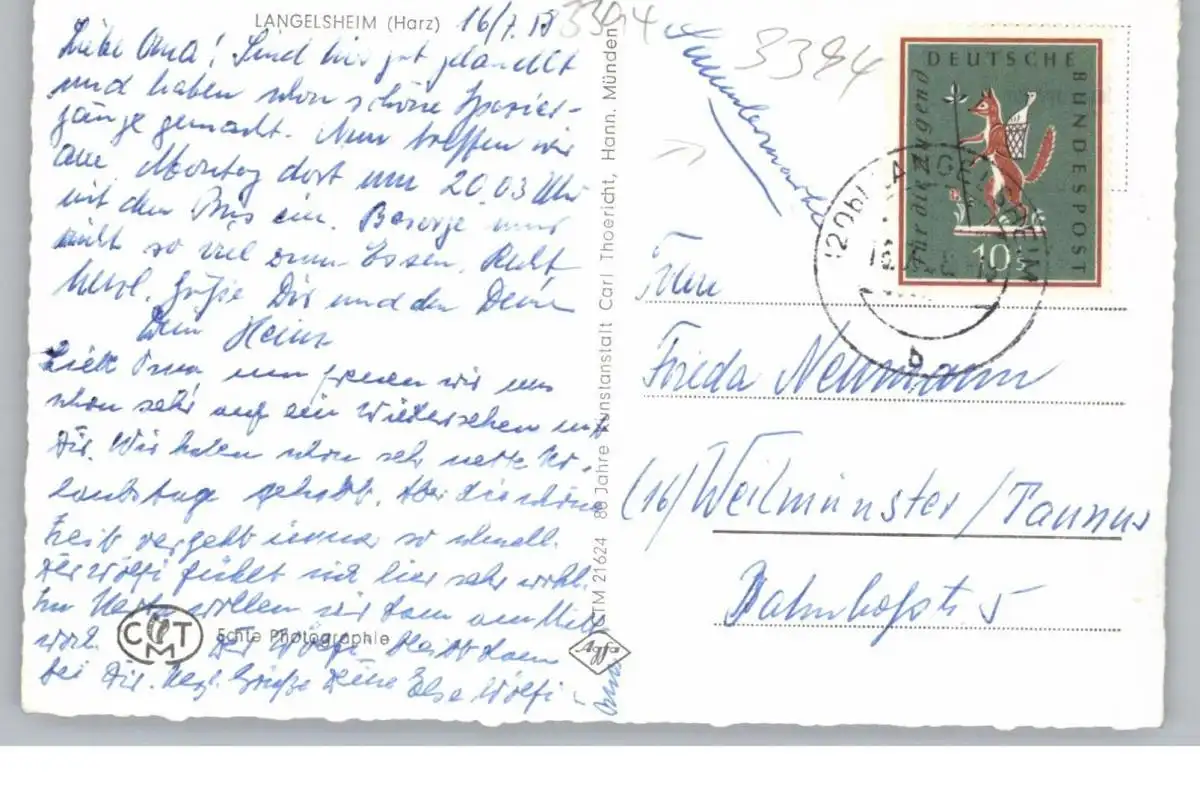 LANGELSHEIM (Harz) 16/7. 58
Liebe Oma! Sind hier gut gelandet
und haben schon schöne Spazier-
gänge gemacht. Nun treffen wir
am Montag dort um 20.03 Uhr
mit dem Bus ein. Besorge nur
nicht so viel zum Essen. Recht
herzl. Grüße Dir und den Deinen
Dein Heinz
Liebe Oma, nun freuen wir uns
schon sehr auf ein Wiedersehen mit
Dir. Wir haben schon sehr nette Ur-
laubstage gehabt. Aber die schöne
Zeit vergeht immer so schnell.
Der Wölfi fühlt sich hier sehr wohl.
Im Harz wollen wir dann am Mitt
woch. Der Wölfi bleibt dann
bei Dir. Herzl. Grüße Deine Else Wölfi
CMT
Echte Photographie
CTM 21624 80 Jahre Kunstanstalt Carl Thoericht, Hann. Münden
3394
3394
Sammlermarke
DEUTSCHE
BUNDESPOST
Für die Jugend
10
(20b) LANGELSHEIM
b
Frau
Frieda Neumann
(16) Weilmünster/Taunus
Bahnhofstr. 5